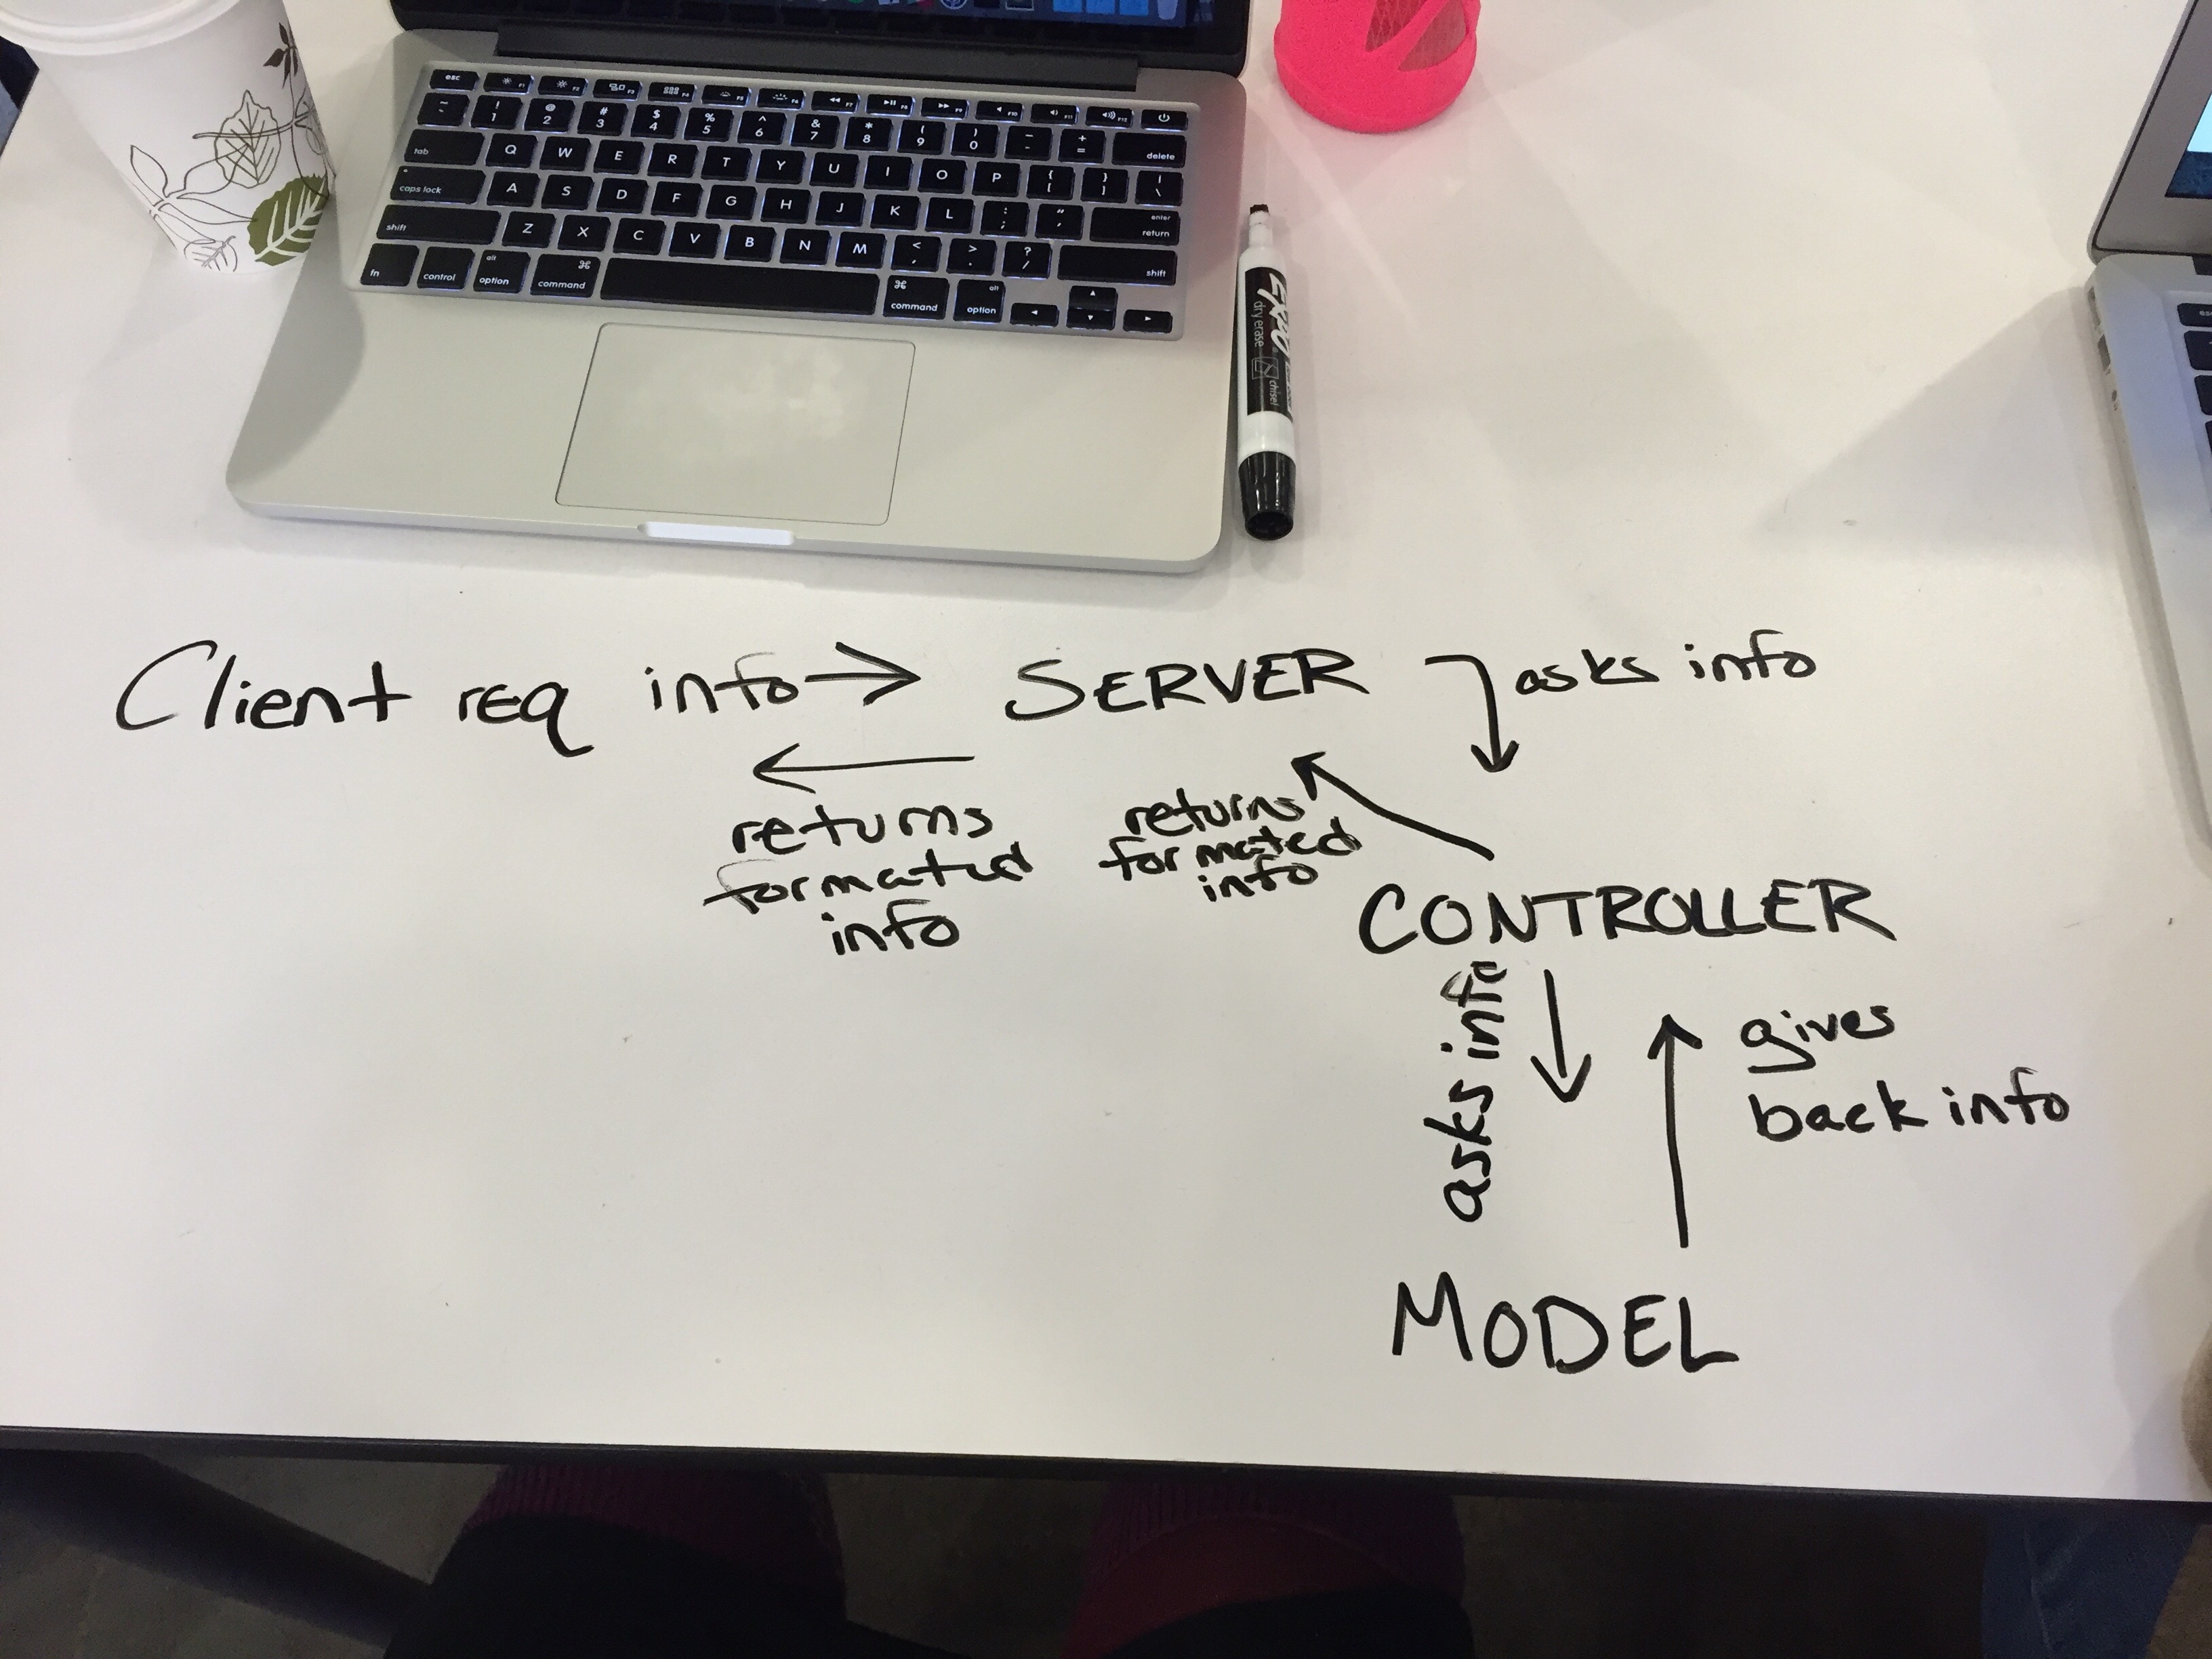 esc F1 F2 F3 F4 F5 F6 F7 F8 F9 F10 F11 F12
~ ` ! 1 @ 2 # 3 $ 4 % 5 ^ 6 & 7 * 8 ( 9 ) 0 _ - + = delete
tab Q W E R T Y U I O P { [ } ] | \
caps lock A S D F G H J K L : ; " ' enter return
shift Z X C V B N M < , > . ? / shift
fn control alt option ⌘ command ⌘ command alt option
EXPO
dry erase chisel
Client req info → SERVER
asks info
←
returns
formated
info
returns
formated
info
CONTROLLER
asks info
gives
back info
MODEL